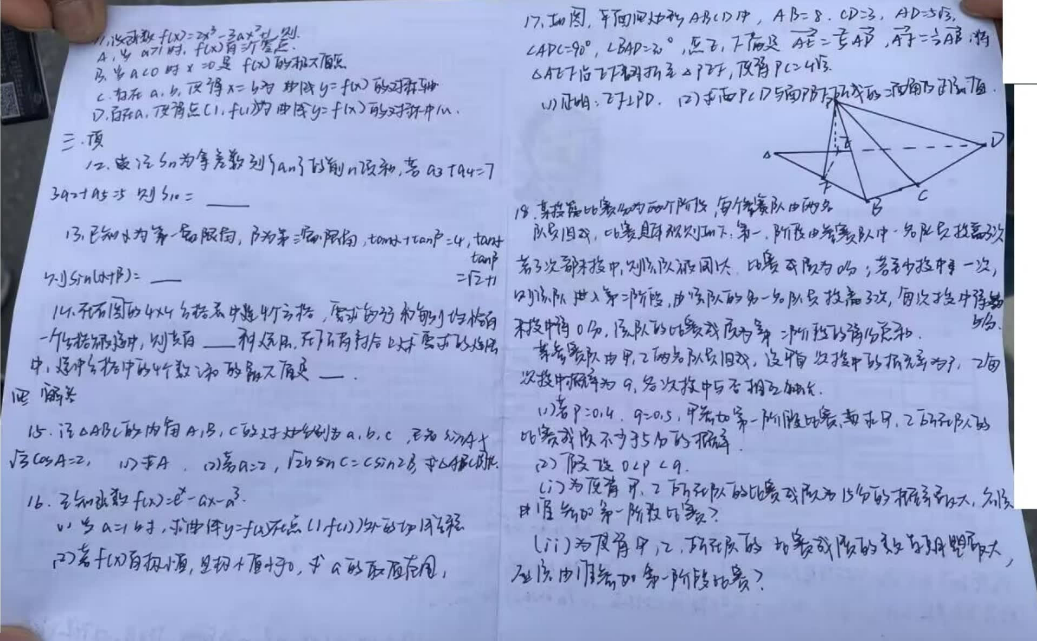 11. 设函数f(x)=2x³-3ax²+1,则
A. 当a>1时, f(x)有三个零点.
B. 当a<0时x=0是f(x)的极大值点
C. 存在a, b, 使得x=b为曲线y=f(x)的对称轴
D. 存在a, 使得点(1, f(1))为曲线y=f(x)的对称中心.
三. 填
12. 记Sn为等差数列{an}的前n项和, 若a3+a4=7
3a2+a5=5 则S10= ___
13. 已知α为第一象限角, β为第三象限角, tanα+tanβ=4, tanα
tanβ
=√2+1
则sin(α+β)= ___
14. 在右图的4×4方格表中选4个方格, 要求每行和每列均恰有
一个方格被选中, 则共有 ___ 种选法, 在所有符合上述要求的选法
中, 选中方格中的4个数之和的最大值是 ___ .
四 解答
15. 记△ABC的内角A, B, C的对边分别为a, b, c 已知sinA+
√3cosA=2, (1)求A. (2)若a=2, √2bsinC=csin2B, 求△ABC周长.
16. 已知函数f(x)=eˣ-ax-a³.
(1) 当a=1时, 求曲线y=f(x)在点(1, f(1))处的切线方程
(2)若f(x)有极小值, 且极小值小于0, 求a的取值范围,
17. 如图, 平面四边形ABCD中, AB=8. CD=3, AD=5√3,
∠ADC=90°, ∠BAD=30°, 点E, F满足 AE=2/5AD, AF=1/2AB, 将
△AEF沿EF翻折至△PEF, 使得PC=4√3.
(1)证明: EF⊥PD. (2)求面PCD与面PBF所成的二面角的正弦值.
P
A
E
D
F
B
C
18. 某投篮比赛分为两个阶段, 每个参赛队由两名
队员组成, 比赛具体规则如下: 第一阶段由参赛队中一名队员投篮3次
若3次都未投中, 则该队被淘汰, 比赛成绩为0分; 若至少投中一次,
则该队进入第二阶段, 由该队的另一名队员投篮3次, 每次投中得
5分.
未投中得0分, 该队的比赛成绩为第二阶段的得分总和.
某参赛队由甲, 乙两名队员组成, 设甲每次投中的概率为p, 乙每
次投中概率为q, 各次投中与否相互独立.
(1)若p=0.4, q=0.5, 甲参加第一阶段比赛, 求甲, 乙所在队的
比赛成绩不少于5分的概率.
(2) 假设0<p<q.
(i)为使得甲, 乙所在队的比赛成绩为15分的概率最大, 应该
由谁参加第一阶段比赛?
(ii)为使得甲, 乙, 所在队的比赛成绩的数学期望最大,
应该由谁参加第一阶段比赛?